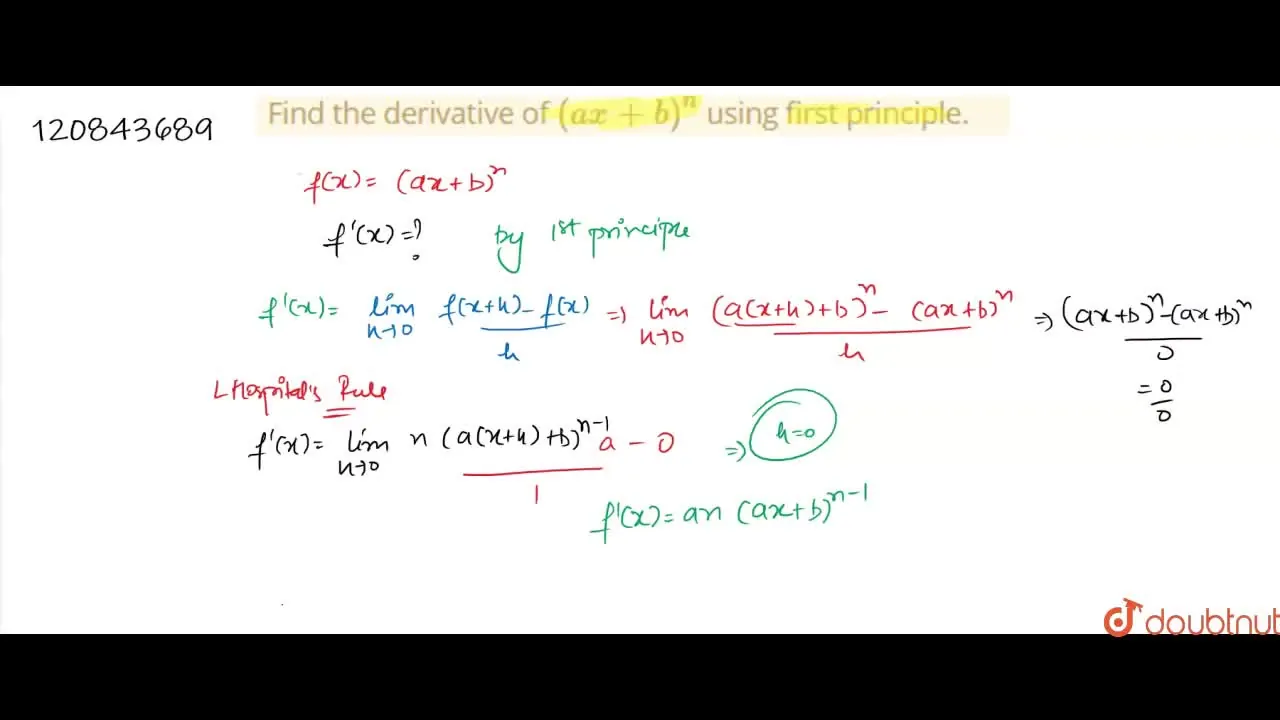 120843689
Find the derivative of (ax + b)ⁿ using first principle.
f(x) = (ax+b)ⁿ
f'(x) = ? by 1st principle
f'(x) = lim h→0 f(x+h) - f(x) / h ⇒ lim h→0 (a(x+h)+b)ⁿ - (ax+b)ⁿ / h ⇒ (ax+b)ⁿ - (ax+b)ⁿ / 0
= 0/0
L Hospital's Rule
f'(x) = lim h→0 n (a(x+h)+b)ⁿ⁻¹ a - 0 / 1 ⇒ h=0
f'(x) = an (ax+b)ⁿ⁻¹
doubtnut